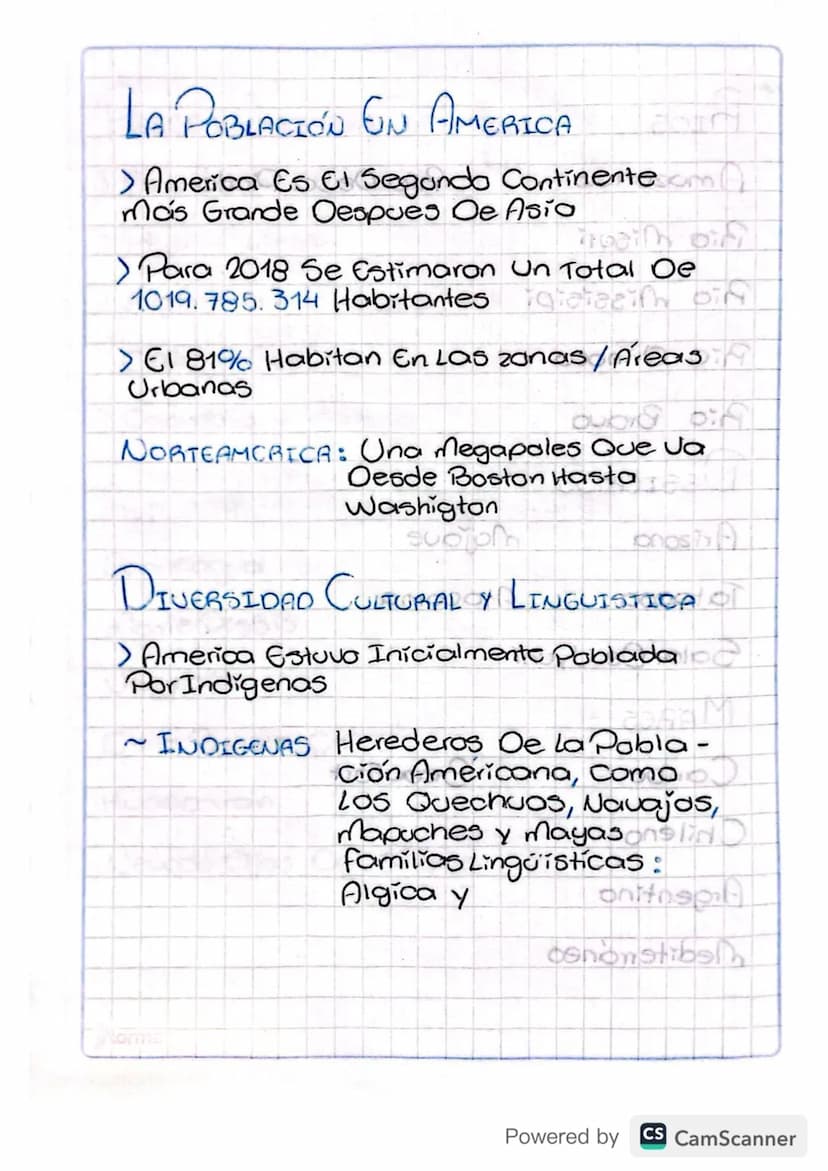 LA POBLACIÓN EN AMERICA
> America Es El Segundo Continente
Más Grande Despues De Asia
> Para 2018 Se Estimaron Un Total De
1019.785.314 Habitantes
> El 81% Habitan En Las zonas / Áreas
Urbanas
NORTEAMERICA: Una Megapoles Que Va
Desde Boston Hasta
Washigton
DIVERSIDAD CULTURAL Y LINGUISTICA
> America Estuvo Inicialmente Poblada
Por Indígenas
~ INDIGENAS Herederos De La Pobla-
ción Américana, Como
Los Quechuas, Navajos,
Mapuches y Mayas
familias Lingüísticas:
Algíca y
Powered by CS CamScanner